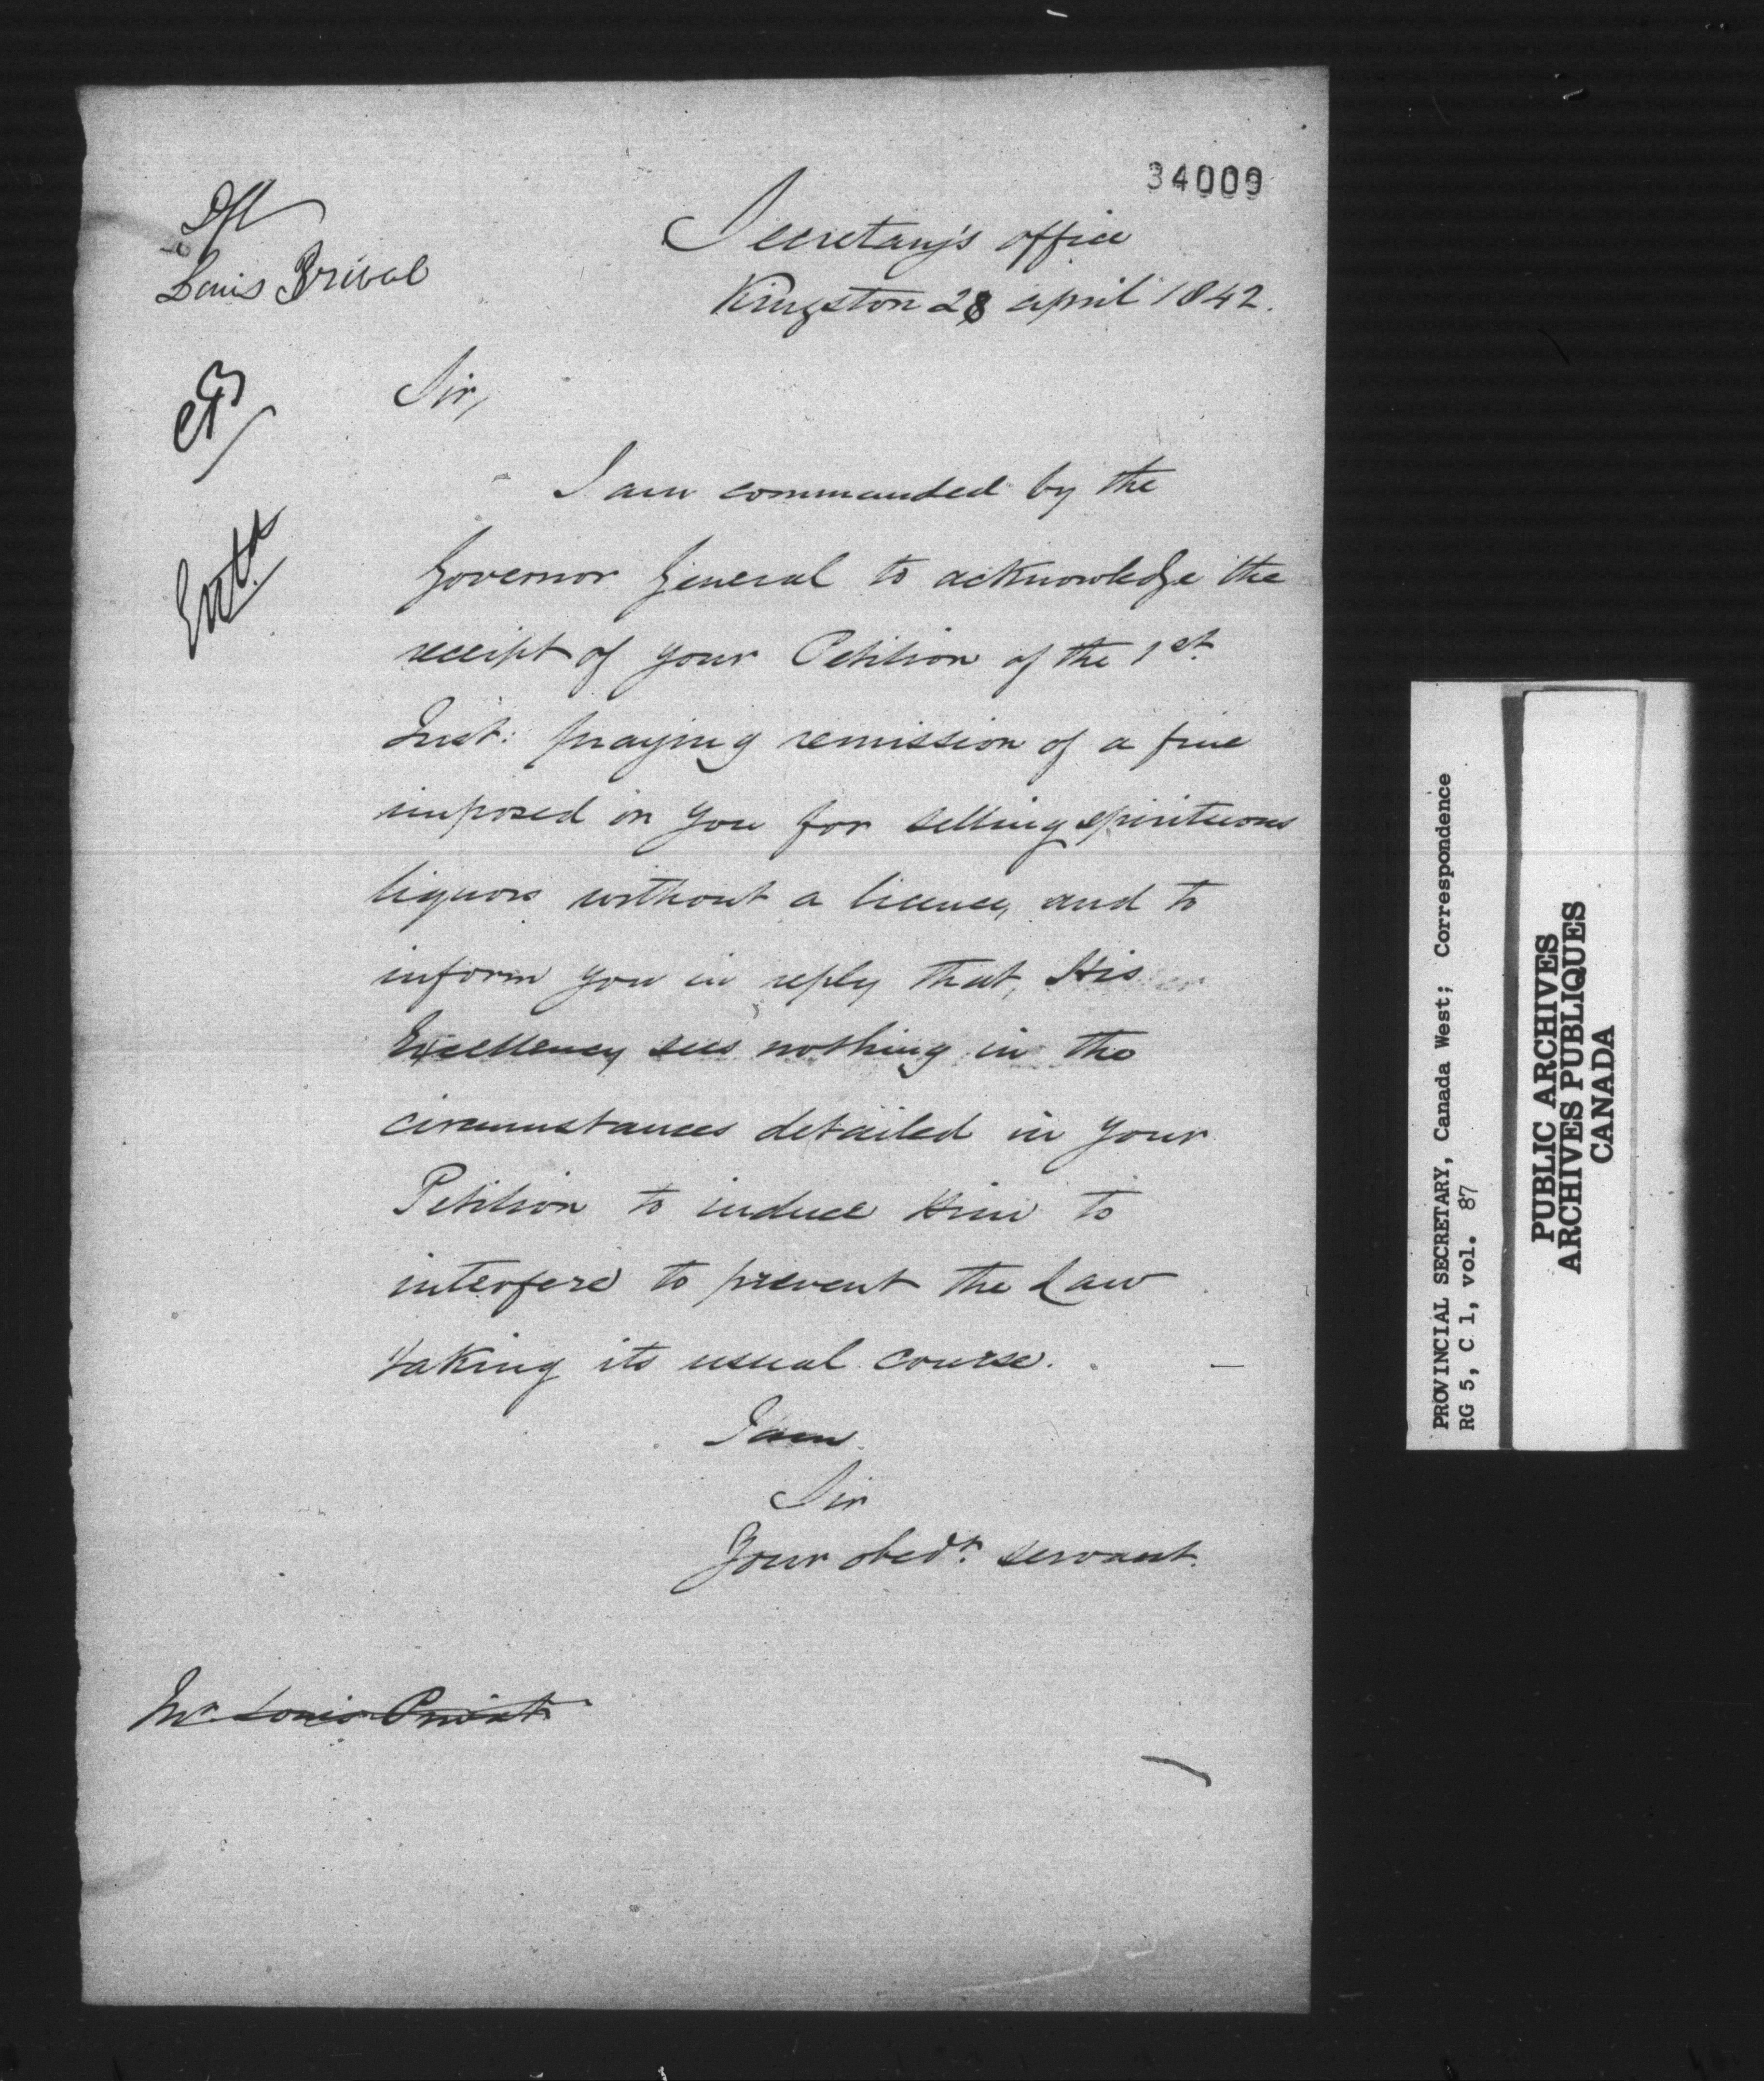 34009
Dft
Louis Brival
Secretary's office
Kingston 28 april 1842.
Entd
Sir,
I am commanded by the
Governor General to acknowledge the
receipt of your Petition of the 1st
Inst: praying remission of a fine
imposed on you for selling spirituous
liquors without a licence, and to
inform you in reply that, His
Excellency sees nothing in the
circumstances detailed in your
Petition to induce Him to
interfere to prevent the Law
taking its usual course.
I am
Sir
Your obedt. servant.
Mr. Louis Privat
PROVINCIAL SECRETARY, Canada West; Correspondence
RG 5, C 1, vol. 87
PUBLIC ARCHIVES
ARCHIVES PUBLIQUES
CANADA